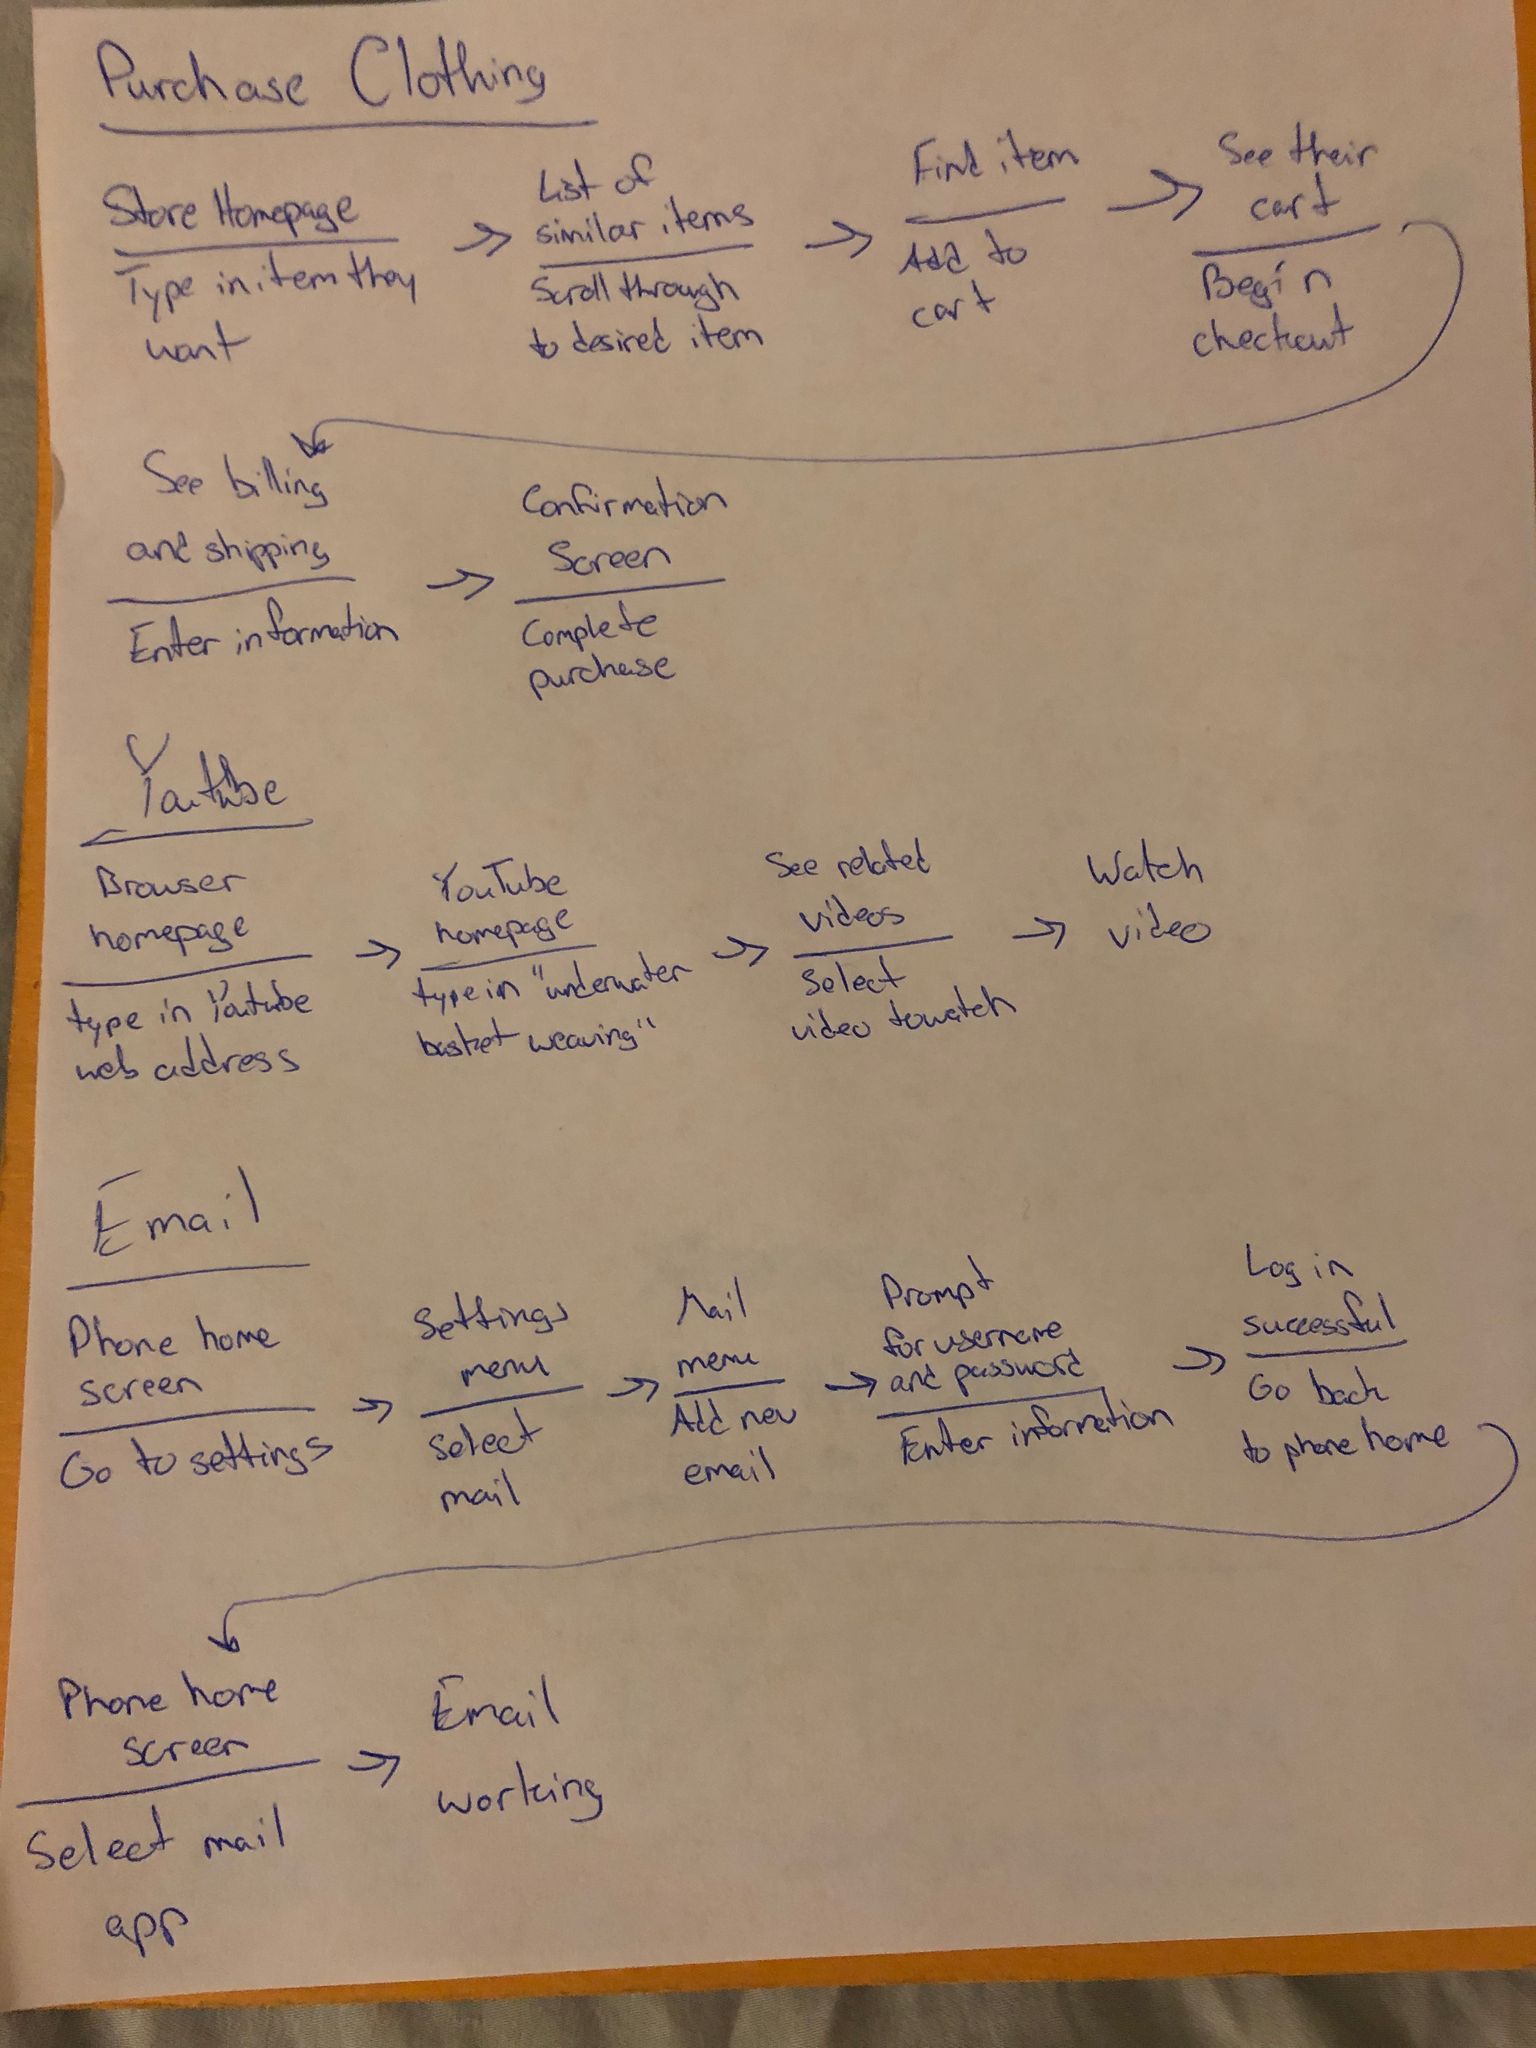 Purchase Clothing
Store Homepage
Type in item they
want
List of
similar items
Scroll through
to desired item
Find item
Add to
cart
See their
cart
Begin
checkout
See billing
and shipping
Enter information
Confirmation
Screen
Complete
purchase
Youtube
Browser
homepage
type in Youtube
web address
YouTube
homepage
type in "underwater
basket weaving"
See related
videos
Select
video to watch
Watch
video
Email
Phone home
screen
Go to settings
Settings
menu
Select
mail
Mail
menu
Add new
email
Prompt
for username
and password
Enter information
Log in
successful
Go back
to phone home
Phone home
screen
Select mail
app
Email
working